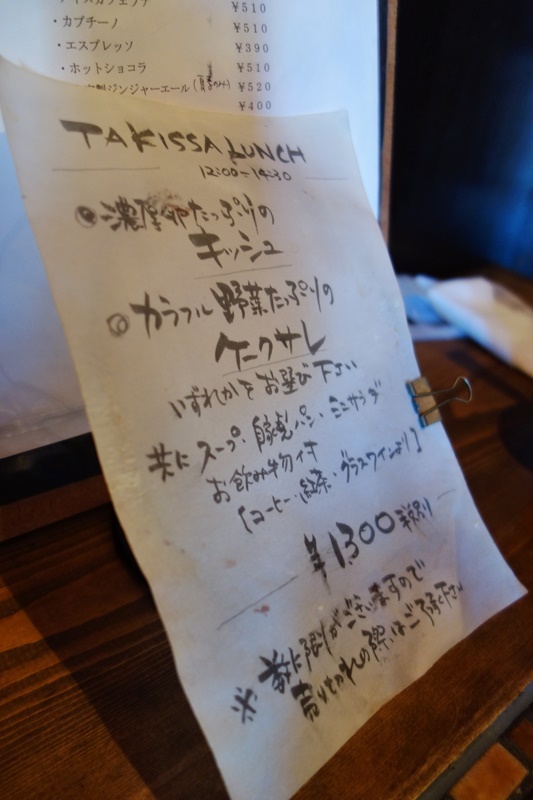 ¥510
・カプチーノ ¥510
・エスプレッソ ¥390
・ホットショコラ ¥510
製ジンジャーエール ¥520
¥400
TAKISSA LUNCH
12:00-14:30
◎濃厚卵たっぷりの
キッシュ
◎カラフル野菜たっぷりの
ケークサレ
いずれかをお選び下さい
共にスープ、自家製パン、ミニサラダ
お飲み物付
(コーヒー、紅茶、グラスワインより)
¥1300 税別
※数に限りがございますので
売り切れの際はご了承下さい